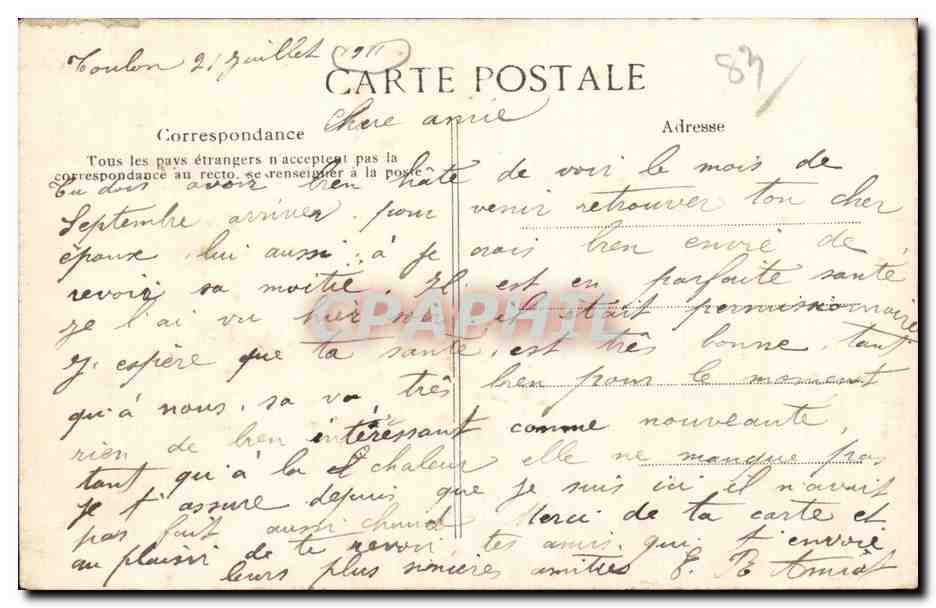 Toulon 21 Juillet 1911
83
CARTE POSTALE
Chere amie
Correspondance
Adresse
Tous les pays étrangers n'acceptent pas la
correspondance au recto. se renseigner à la poste
Tu dois avoir bien hâte de voir le mois de
Septembre arriver pour venir retrouver ton cher
époux, lui aussi à je crois bien envie de
revoir sa moitié. Il est en parfaite santé
je l'ai vu hier soir il était permissionnaire
J'espère que ta santé est très bonne, tant
qu'à nous, sa va très bien pour le moment
rien de bien intéressant comme nouveauté,
tant qu'à la chaleur elle ne manque pas
je t'assure depuis que je suis ici il n'avait
pas fait aussi chaud Merci de ta carte et
au plaisir de te revoir, tes amis qui t'envoie
leurs plus sincères amitiés E. R Amiot
CPAPHIL